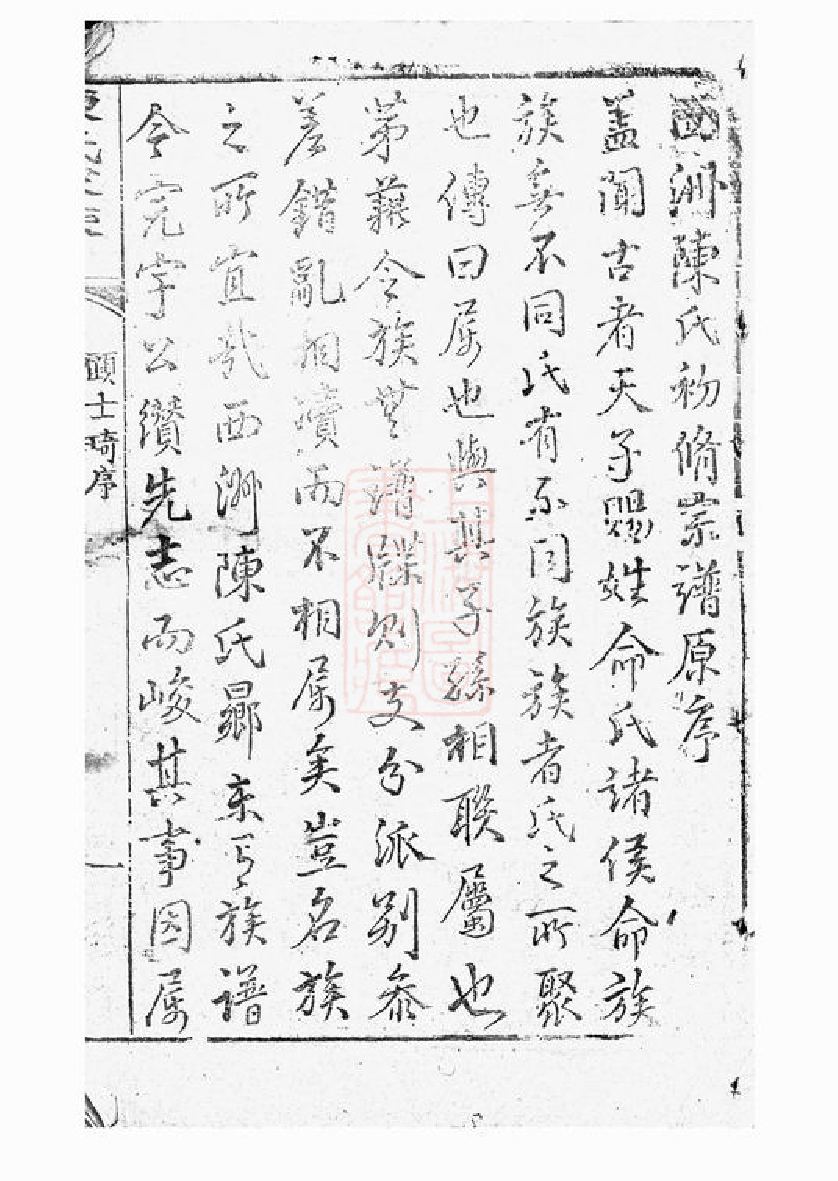 西洲陳氏初脩宗譜原序
蓋聞古者天子賜姓命氏諸侯命族
族無不同氏有不同族族者氏之所聚
也傳曰屬也與其子孫相聯屬也
苐藉令族無譜牒則支分派別叅
差錯亂相瀆而不相屬矣豈名族
之所宜哉西洲陳氏曏未有族譜
今完宇公纘先志而峻其事因屬
顧士琦序
一